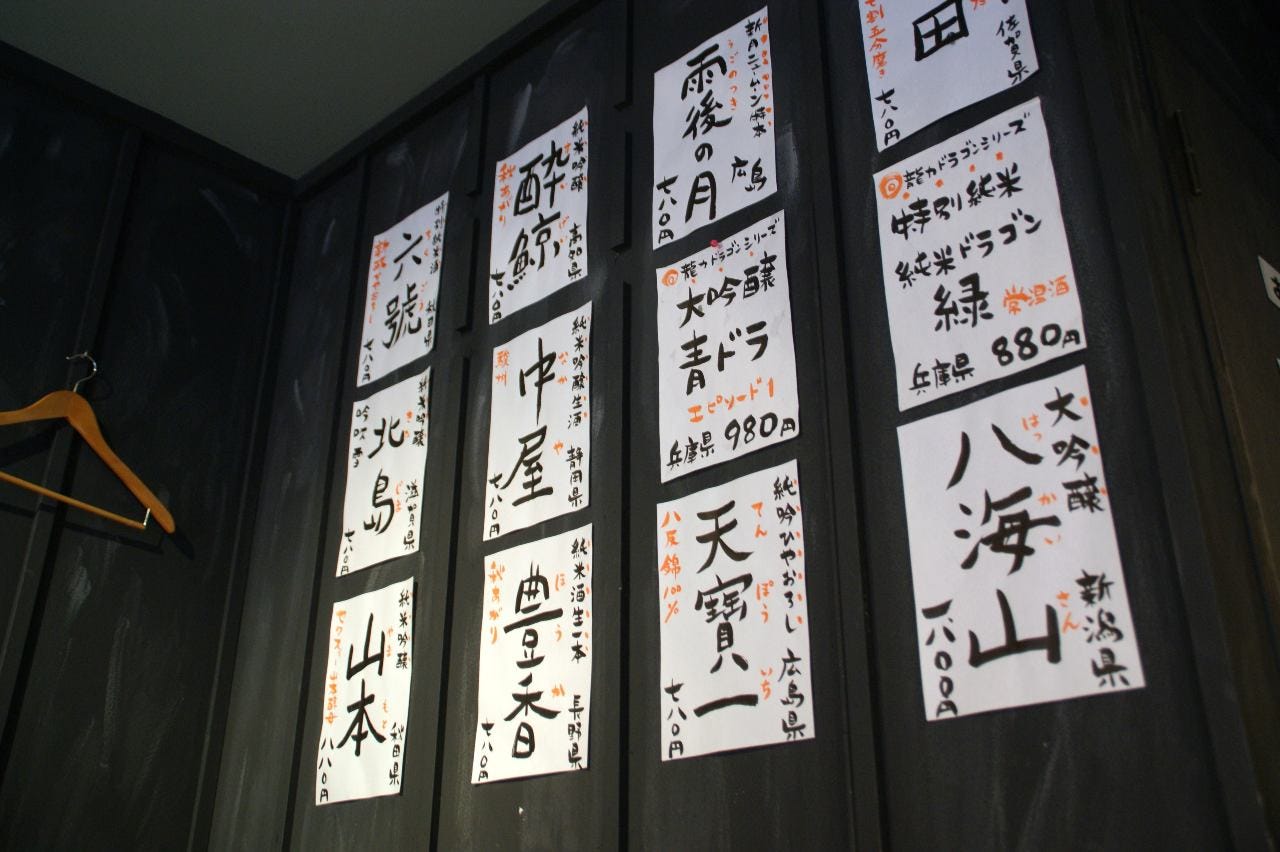 特別純米酒
六號
ろくごう
秋田県
七八〇円
純米吟醸
北島
きたじま
滋賀県
吟吹雪
七八〇円
純米吟醸
山本
やまもと
秋田県
八八〇円
純米吟醸
酔鯨
すいげい
高知県
秋あがり
七八〇円
純米吟醸生酒
中屋
なかや
静岡県
駿州
七八〇円
純米酒生一本
豊香
ほうか
長野県
秋あがり
七八〇円
新月ニュームーン特本
雨後の月
うごのつき
広島
七八〇円
龍力ドラゴンシリーズ
大吟醸
青ドラ
エピソード1
兵庫県 980円
純吟ひやおろし 広島県
天寶一
てんぽういち
八反錦100%
七八〇円
田
佐賀県
七割五分磨き
七八〇円
龍力ドラゴンシリーズ
特別純米
純米ドラゴン
緑 常温酒
兵庫県 880円
大吟醸
八海山
はっかいさん
新潟県
一八〇〇円